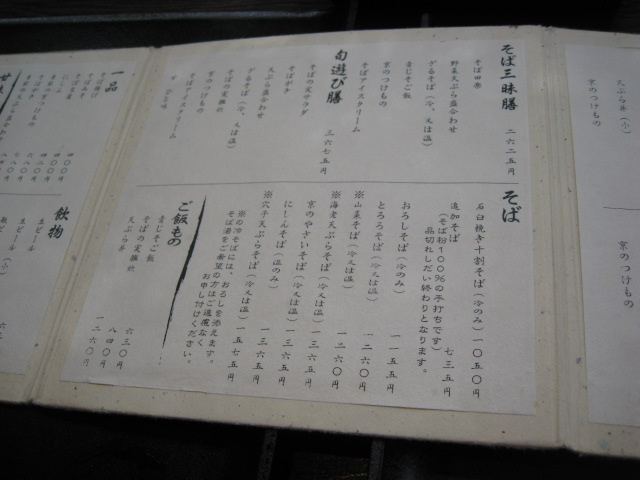 そば三昧膳 二六二五円
そば田楽
野菜天ぷら盛合わせ
ざるそば（冷、又は温）
青じそご飯
京のつけもの
そばアイスクリーム
旬遊び膳 三六七五円
そばの実サラダ
そばがき
天ぷら盛合わせ
ざるそば（冷、又は温）
そばの実雑炊
京のつけもの
そばアイスクリーム
そば
石臼挽き十割そば（冷のみ） 一〇五〇円
追加そば 七三五円
（そば粉１００％の手打ちです）
品切れしだい終わりとなります。
おろしそば（冷のみ） 一一五五円
とろろそば（冷又は温） 一二六〇円
※山菜そば（冷又は温） 一二六〇円
※海老天ぷらそば（冷又は温） 一三六五円
京のやさいそば（冷又は温） 一三六五円
にしんそば（温のみ） 一三六五円
※穴子天ぷらそば（冷又は温） 一五七五円
※の冷そばには、おろしを添えます。
そば湯をご希望の方はご遠慮なく
お申し付けください。
ご飯もの
青じそご飯 六三〇円
そばの実雑炊 八四〇円
天ぷら丼 一二六〇円
一品
飲物
生ビール
生ビール（小）
天ぷら丼（小）
京のつけもの
京のつけもの